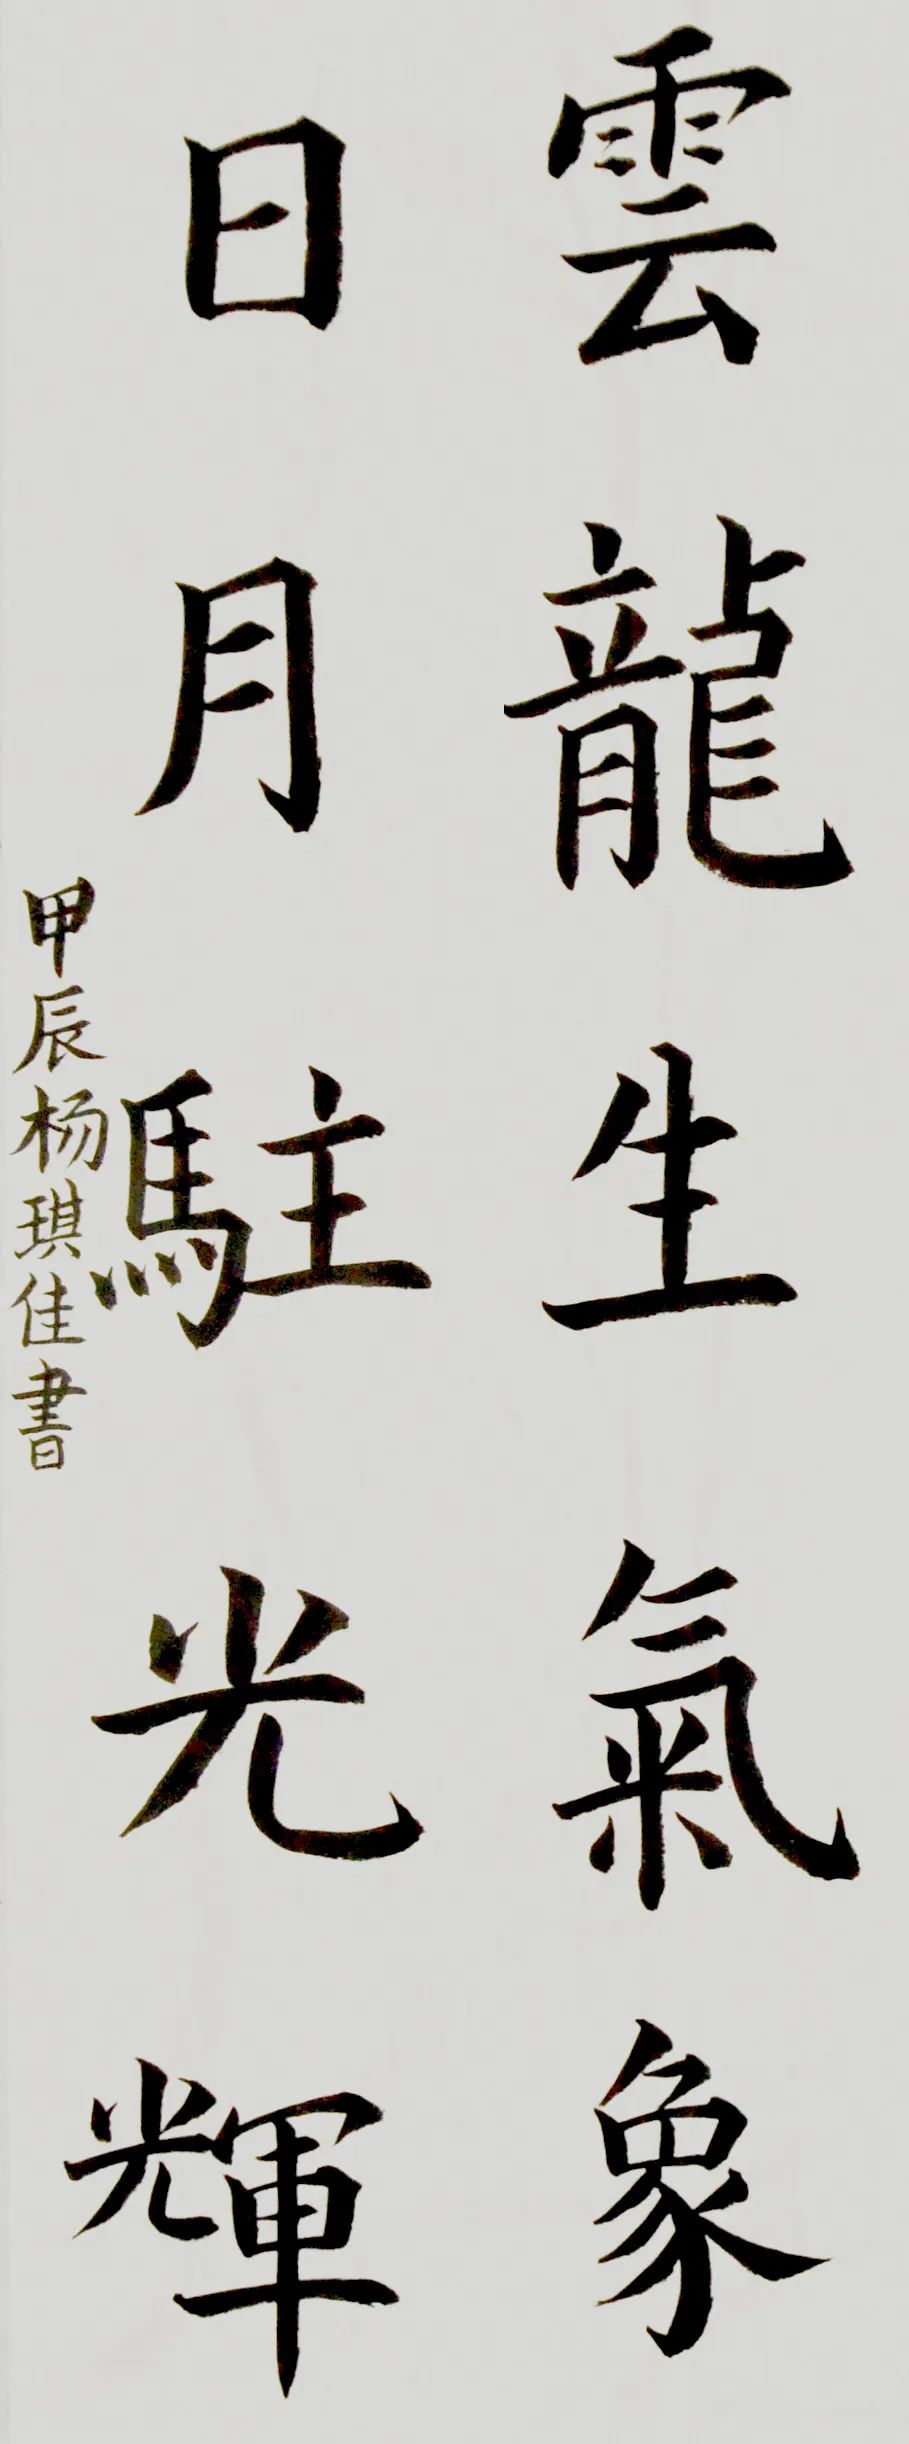 雲龍生氣象
日月駐光輝
甲辰杨琪佳書